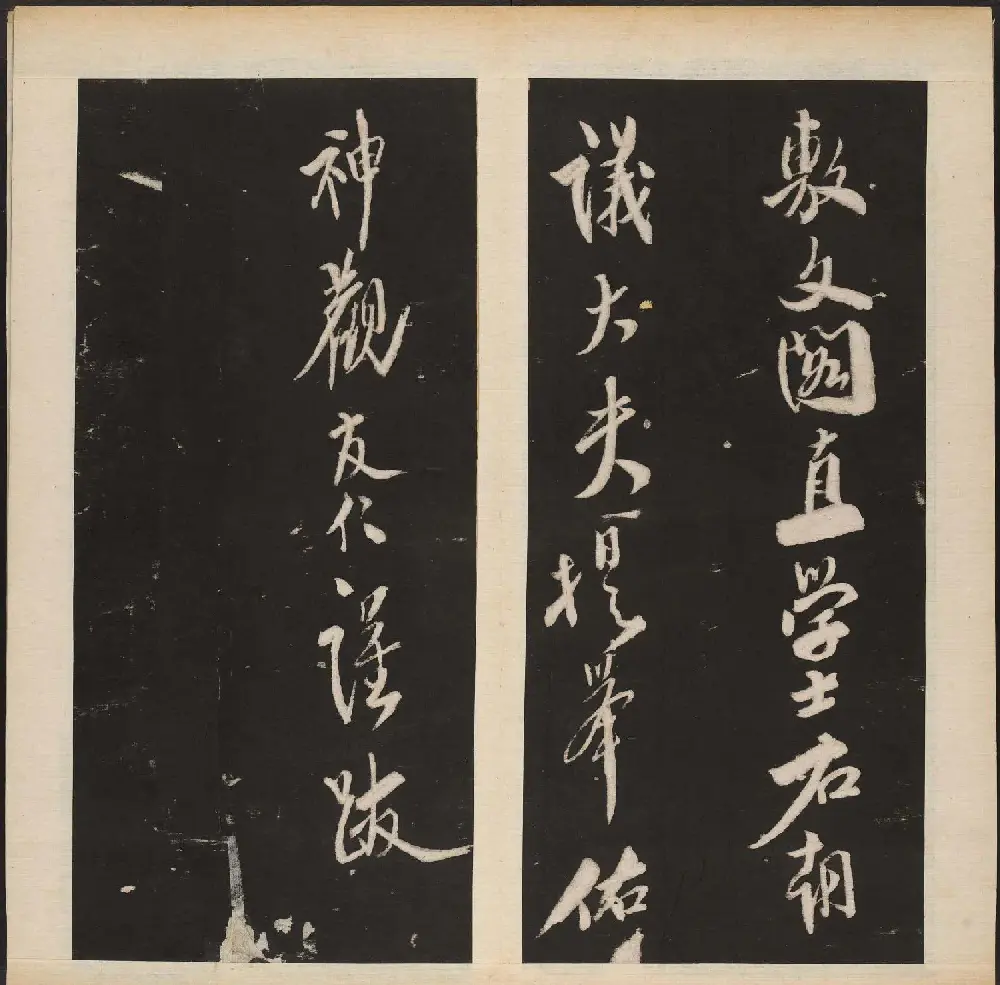 敷文閣直学士右朝
議大夫提舉佑
神觀友仁謹跋